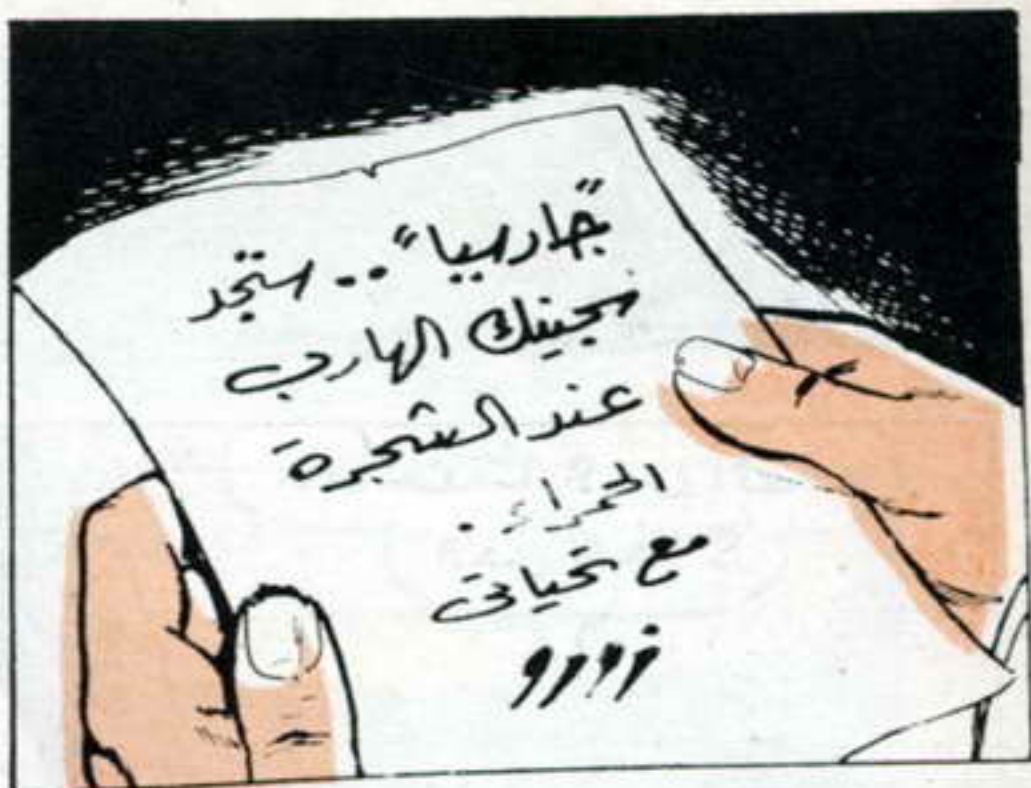 "جارسيا".. ستجد
سجينك الهارب
عند الشجرة
الحمراء.
مع تحياتى
زورو